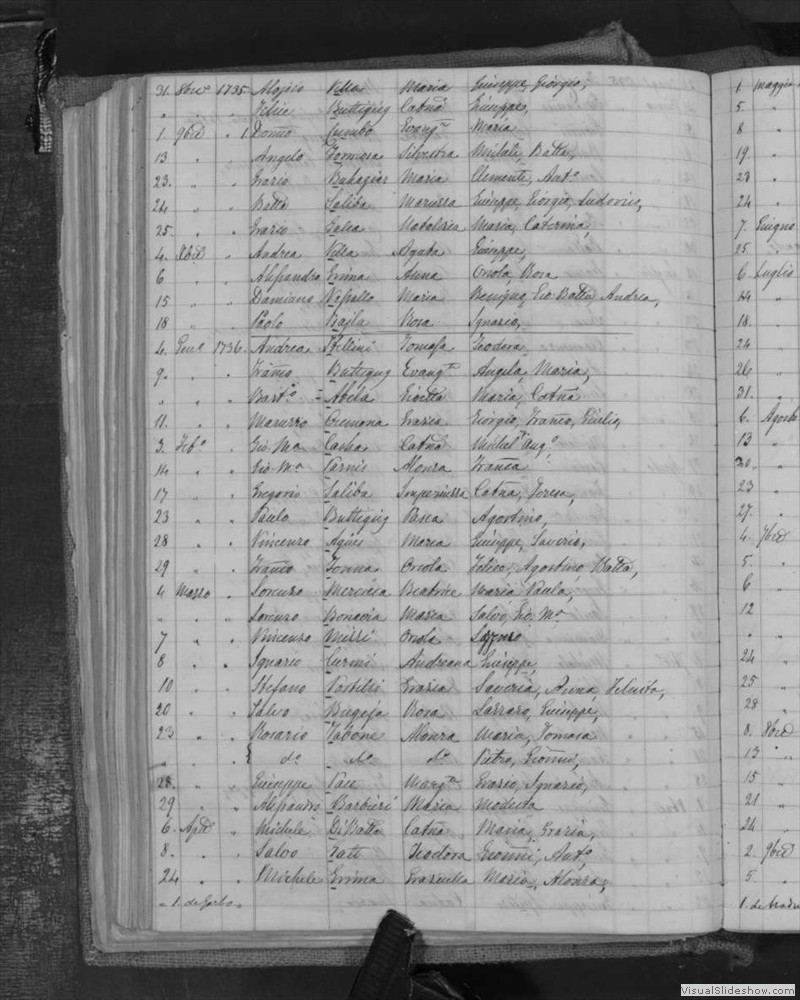 31. 8bre 1735. Alojsio Vella Maria Giuseppe, Giorgio,
" " " Felice Buttigieg Catna Giuseppe,
1. 9bre " 1. Cumbo Evang.a Maria
13 " " Angelo Formosa Silvestra Batta,
23. " " Grazio Buhagiar Maria Clemente, Ant.o
24 " " Batta Saliba Maruzza Giuseppe, Giorgio, Ludovico,
25. " " Grazio Galea Natalizia Maria, Caterina,
4. Xbre " Andrea Vella Agata Giuseppe,
6 " " Alessandro Grima Anna Orsola, Rosa
15 " " Damiano Maria Benigno, Gio Batta, Andrea,
18 " " Paolo Bajla Rosa Ignazio,
4. Gen.o 1736. Andrea Stellini Tomasa Teodora,
9. " " Franco Buttigieg Evang.ta Angela, Maria,
" " " Bart.o = Abela Maria, Catna
11. " " Maruzzo Cremona Grazia Giorgio, Franco, Giulio,
3. Feb.o " Gio. Ma Catna Michel Ang.o
14. " " Gio. Ma Farnis Alonza Franca
17 " " Gregorio Saliba Imperiuzza Catna, Teresa,
23 " " Paulo Buttigieg Agostino,
28 " " Vincenzo Agius Maria Giuseppe, Saverio,
29 " " Franco Tonna Orsola Felice, Agostino, Batta,
4 Marzo " Lorenzo Mercieca Beatrice Maria Paula,
" " " Lorenzo Bonavia Maria Salvo, Gio. Ma
7 " " Vincenzo Missi Orsola Lorenzo
8 " " Ignazio Curmi Andreana Giuseppe,
10 " " Stefano Portelli Grazia Saveria, Anna, Felicita,
20 " " Salvo Bigeja Rosa Lazzaro, Giuseppe,
23 " " Rosario Tabone Alonza Maria, Tomasa
" " " do do do Pietro, Gionni,
28. " " Giuseppe Pace Marg.ta Grazio, Ignazio,
29 " " Alessandro Barbieri Maria Modesta
6. Aple " Michele DiBatta Catna Maria, Grazia,
8. " " Salvo Tatt Teodora Gionni, Ant.o
24 " " Michele Grima Graziulla Maria, Alonza,
= 1. de Garbo =
1. Maggio
5 "
8 "
19. "
23 "
24 "
7. Giugno
15. "
6 Luglio
14 "
18. "
24 "
26 "
31. "
6. Agosto
13 "
20. "
23 "
27. "
4. 7bre
5. "
6 "
12
"
24 "
25 "
28 "
8. 8bre
13 "
15 "
21 "
24 "
2. 9bre
5 "
1. de
VisualSlideshow.com